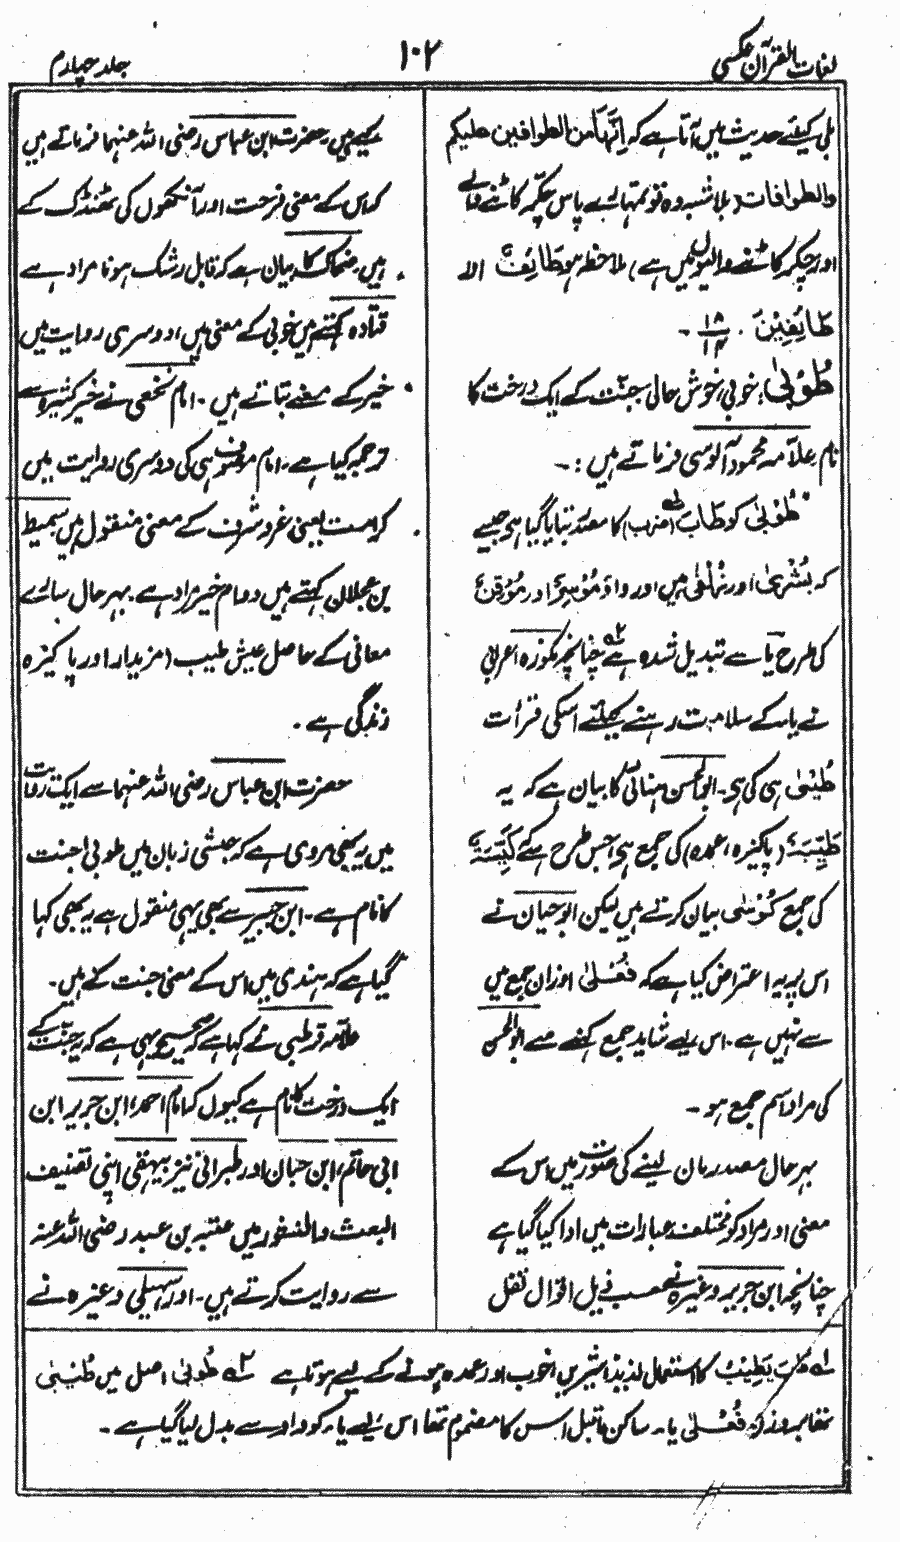 لغات القرآن عکسی
۱۰۲
جلد چہارم
بلی کیلئے حدیث میں آتا ہے کہ اِنَّہَا من الطوافین علیکم
والطوافات (بلا شبہ وہ تو تمہارے پاس چکر کاٹنے والے
اور چکر کاٹنے والیوں میں ہے) ملاحظہ ہو طَائِفٌ الا
طَائِفِیْنَ ۔ ۱۸/۱۴ ۔
طُوْبٰی؛ خوبی، خوش حالی، جنت کے ایک درخت کا
نام علامہ محمود آلوسی فرماتے ہیں :۔
طُوْبٰی کو طَابَ (ضرب) کا مصدر بتایا گیا ہی جیسے
کہ بُشْرٰی اور زُلْفٰی ہیں اور واؤ مُوْسِرٌ اور مُوْقِنٌ
کی طرح یا سے تبدیل شدہ ہے چنانچہ مکوزہ اعرابی
نے یا کے سلامت رہنے کیلئے اسکی قرأت
طِیْبٰی ہی کی ہی۔ ابوالحسن ہنائی کا بیان ہے کہ یہ
طَیِّبَۃٌ (پاکیزہ، عمدہ) کی جمع ہی جس طرح سے کَیِّسَۃٌ
کی جمع کُوْسٰی بیان کرتے ہیں لیکن ابوحیان نے
اس پر یہ اعتراض کیا ہے کہ فُعْلٰی اوزان جمع میں
سے نہیں ہے۔ اس لیے شاید جمع کہنے سے ابوالحسن
کی مراد اسم جمع ہو ۔
بہر حال مصدر مان لینے کی صورت میں اس کے
معنی اور مراد کو مختلف عبارات میں ادا کیا گیا ہے
چنانچہ ابن جریر وغیرہ نے حسب ذیل اقوال نقل
کیے ہیں۔ حضرت ابن عباس رضی اللہ عنہما فرماتے ہیں
کہ اس کے معنی فرحت اور آنکھوں کی ٹھنڈک کے
ہیں۔ ضحاک کا بیان ہے کہ قابل رشک ہونا مراد ہے
قتادہ کہتے ہیں خوبی کے معنی ہیں اور دوسری روایت میں
خیر کے معنے بتاتے ہیں ۔ امام نخعی نے خیر کثیر سے
ترجمہ کیا ہے۔ امام موصوف ہی کی دوسری روایت میں
کرامت یعنی عز و شرف کے معنی منقول ہیں سمیط
بن عجلان کہتے ہیں دوام خیر مراد ہے۔ بہر حال سارے
معانی کے حاصل عیش طیب (مزیدار اور پاکیزہ
زندگی ہے ۔
حضرت ابن عباس رضی اللہ عنہما سے ایک روایت
میں یہ بھی مروی ہے کہ حبشی زبان میں طوبی جنت
کا نام ہے۔ ابن جبیر سے بھی یہی منقول ہے یہ بھی کہا
گیا ہے کہ ہندی میں اس کے معنی جنت کے ہیں۔
علامہ قرطبی نے کہا ہے کہ صحیح یہی ہے کہ یہ جنت کے
ایک درخت کا نام ہے کیوں کہ امام احمد، ابن جریر، ابن
ابی حاتم، ابن حبان اور طبرانی نیز بیہقی اپنی تصنیف
البعث والنشور میں عتبہ بن عبد رضی اللہ عنہ
سے روایت کرتے ہیں۔ اور سہیلی وغیرہ نے
لہ طَابَ یَطِیْبُ کا استعمال لذیذ، شیریں، خوب اور عمدہ ہونے کے لیے ہوتا ہے ۲ہ طُوبٰی اصل میں طُیْبٰی
تھا بروزن فُعْلٰی یا۔ ساکن ماقبل اس کا مضموم تھا اس لیے یا۔ کو واؤ سے بدل لیا گیا ہے ۔